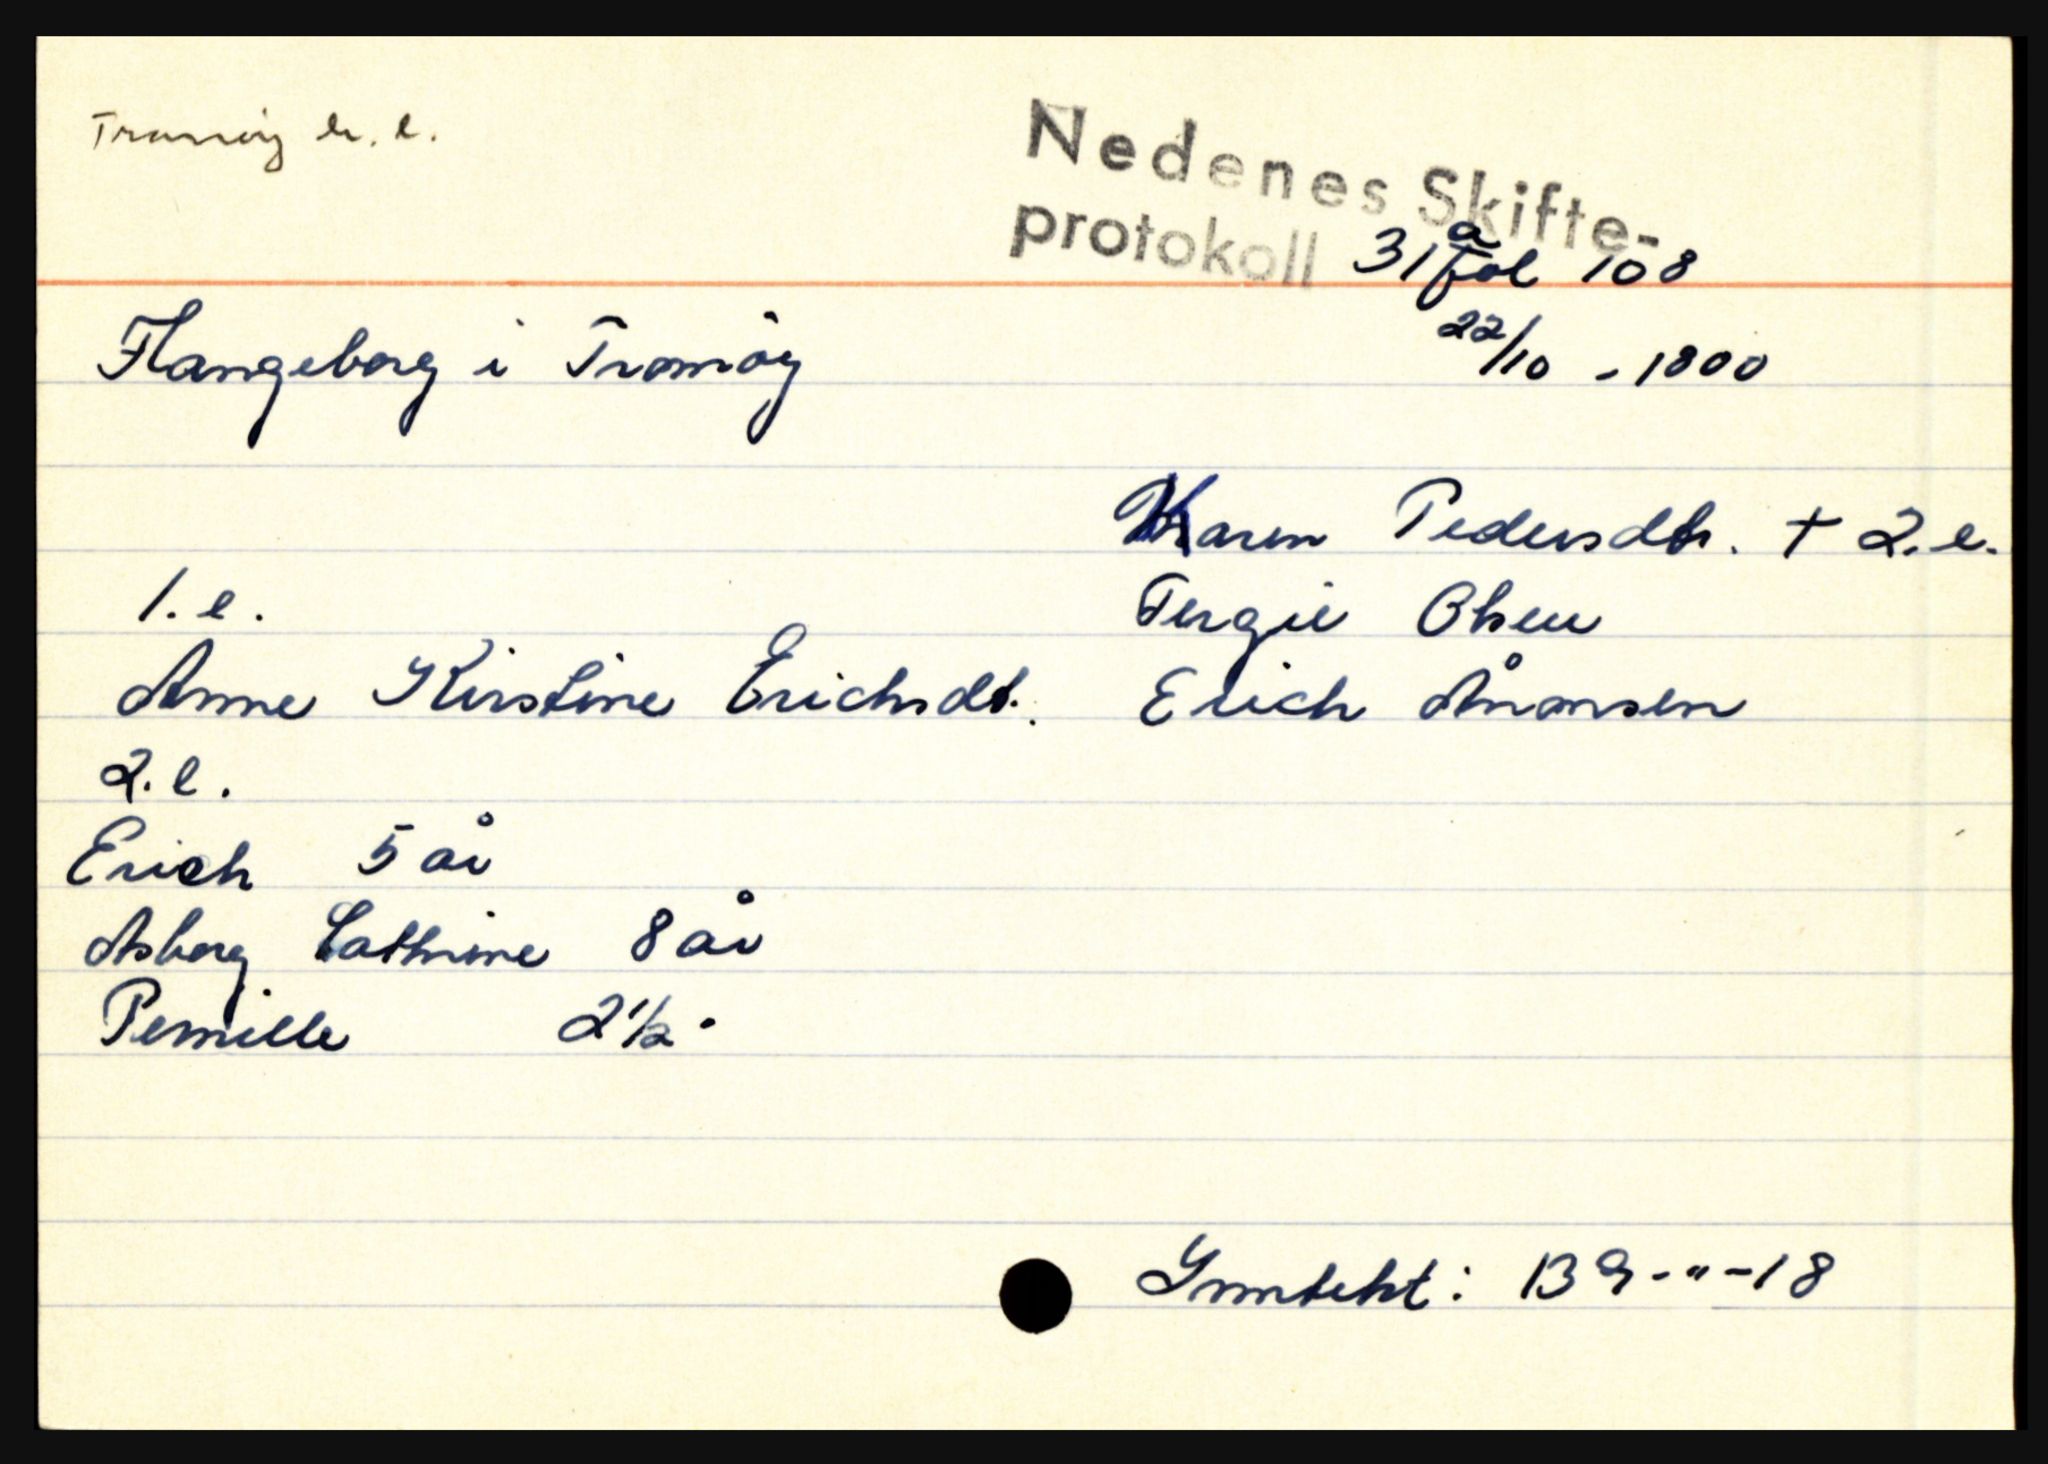 Tromöy h. l.
Nedenes Skifte-
protokoll 31a fol 108
Flangeborg i Tromöy
22/10 - 1800
Karen Pedersdtr. † 2. e.
1. e.
Tergie Olsen
Anne Kirstine Erichsdt. Erich Ånonsen
2. e.
Erich 5 år
Asborg Cathrine 8 år
Pernille 2 1/2 .
Inntekt: 139-"-18